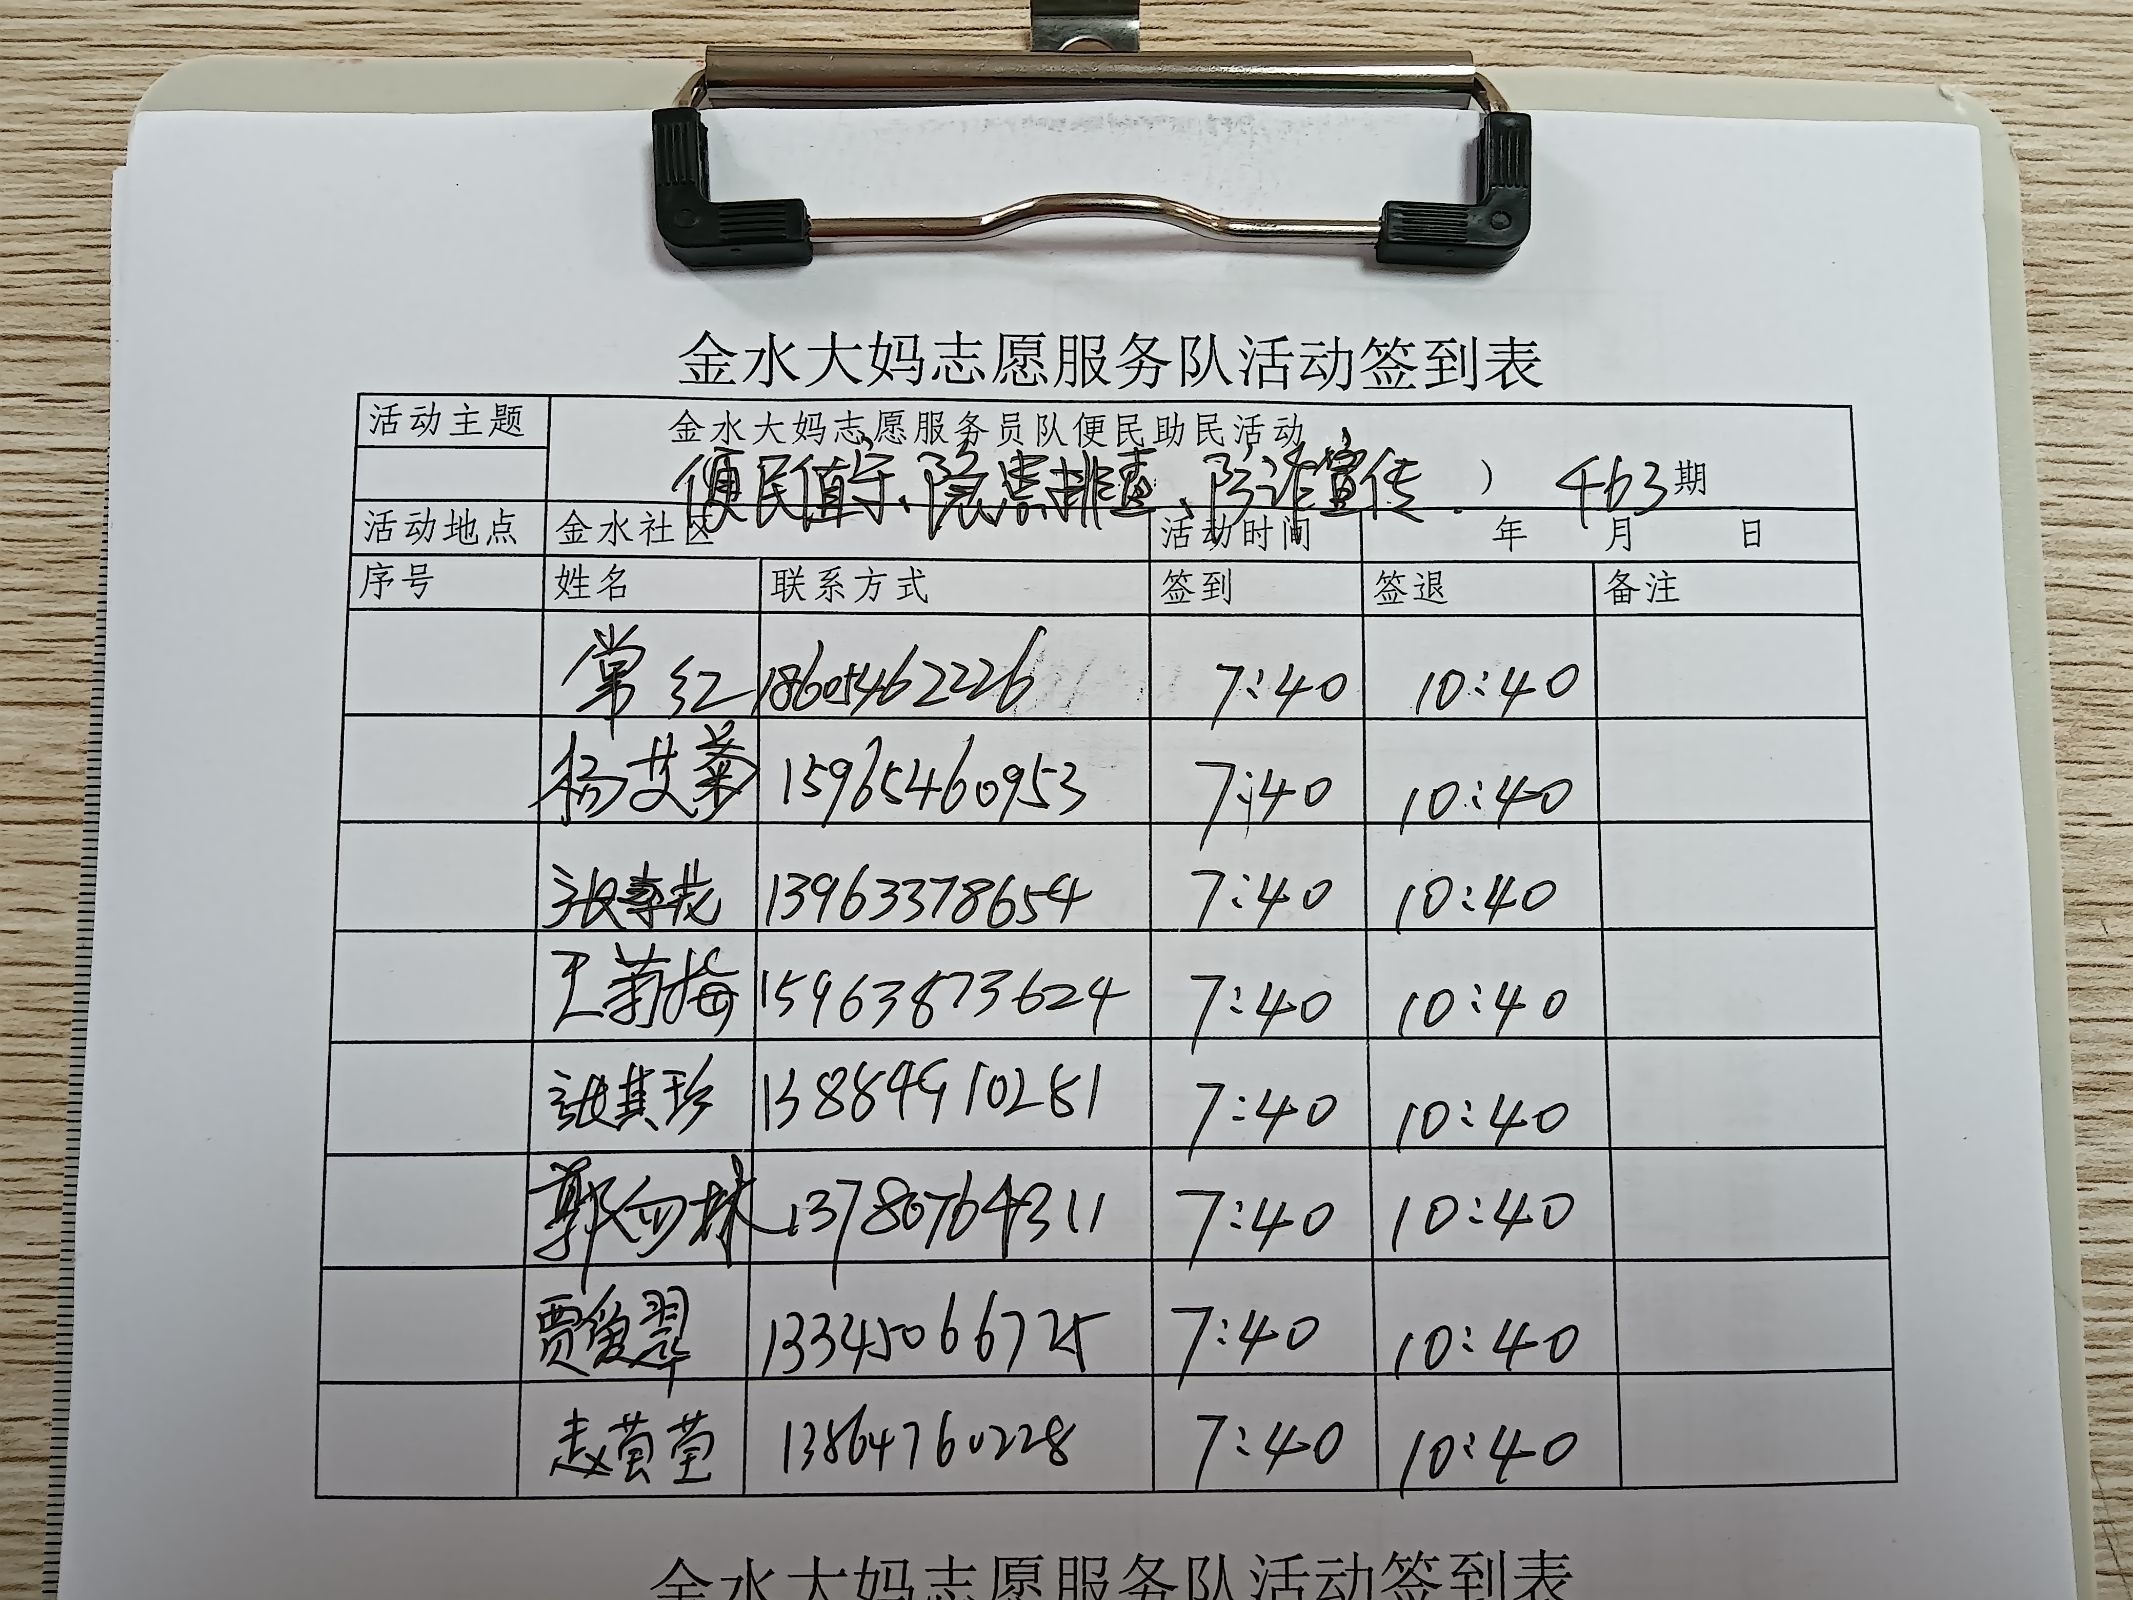 金水大妈志愿服务队活动签到表
活动主题 金水大妈志愿服务员队便民助民活动
便民值守、隐患排查、防诈宣传. ） 463期
活动地点 金水社区 活动时间 年 月 日
序号 姓名 联系方式 签到 签退 备注
常红 18605462226 7:40 10:40
杨艾菊 15965460953 7:40 10:40
张春花 13963378654 7:40 10:40
王菊梅 15963873624 7:40 10:40
张其珍 13884910281 7:40 10:40
郭向林 13780764311 7:40 10:40
贾爱翠 13345066725 7:40 10:40
赵萤萤 13864760228 7:40 10:40
金水大妈志愿服务队活动签到表